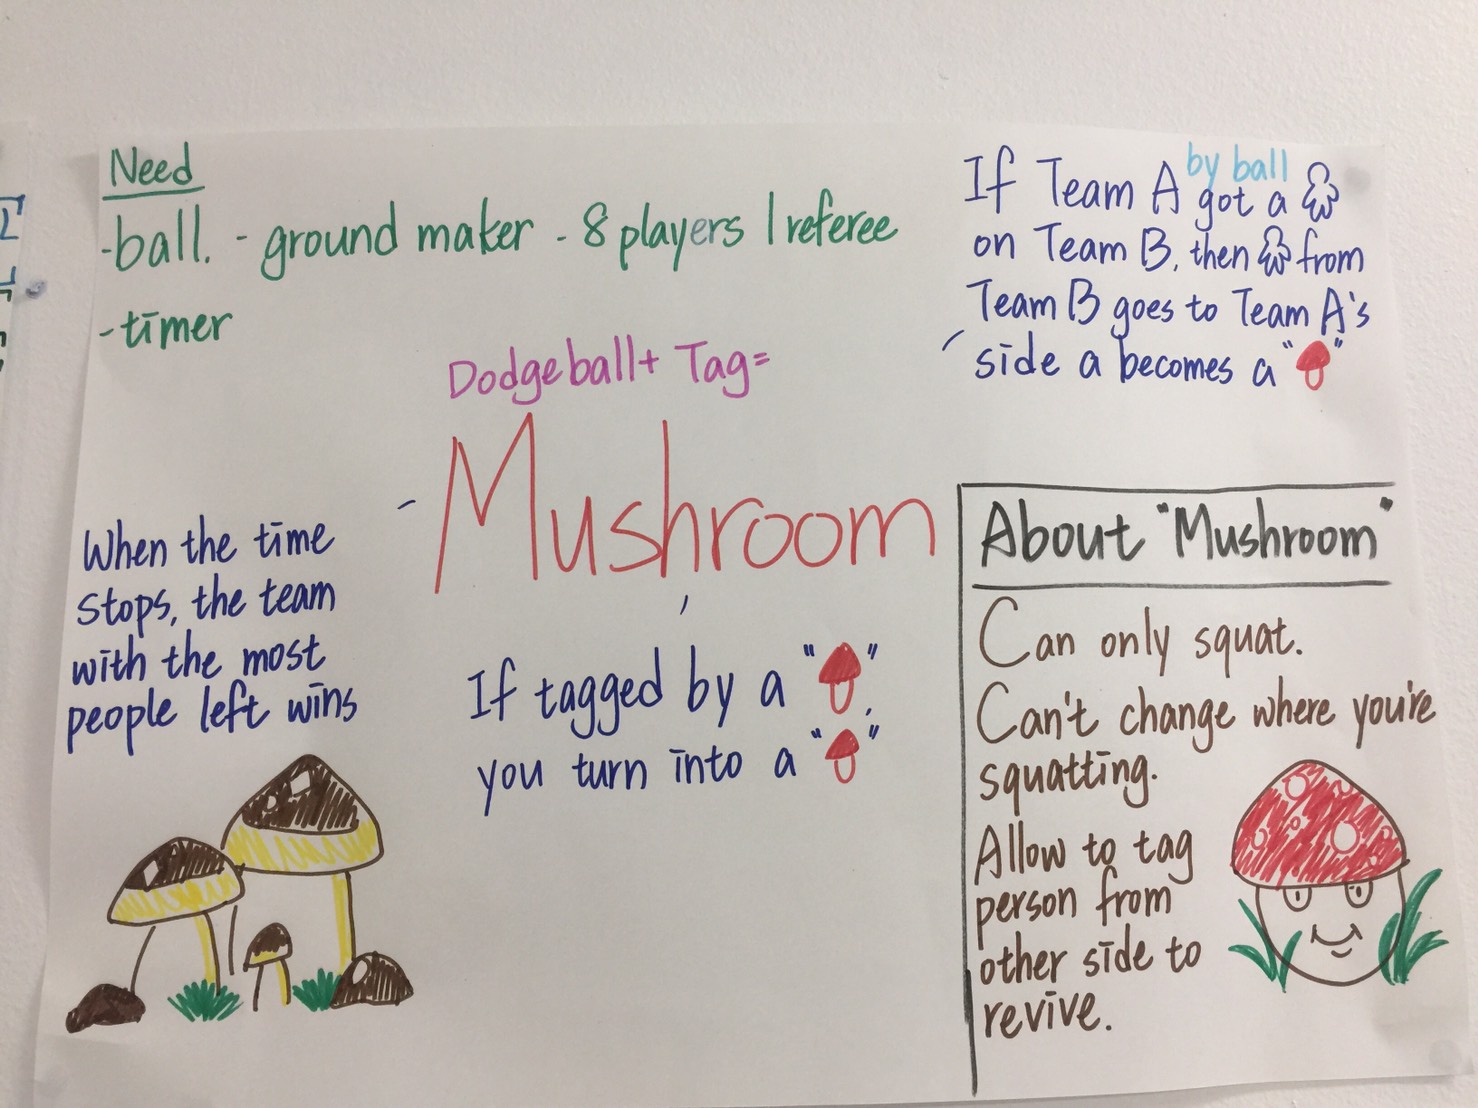 Need
-ball. - ground maker - 8 players 1 referee
-timer
If Team A by ball got a
on Team B, then from
Team B goes to Team A's
side a becomes a " "
Dodgeball + Tag =
Mushroom
When the time
stops, the team
with the most
people left wins
If tagged by a " ",
you turn into a " "
About "Mushroom"
Can only squat.
Can't change where you're
squatting.
Allow to tag
person from
other side to
revive.